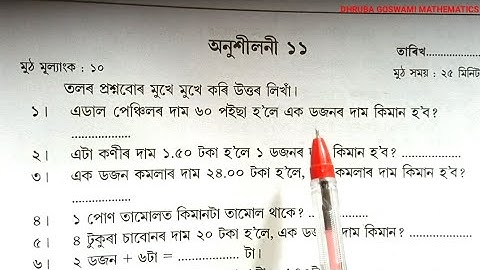 DHRUBA GOSWAMI MATHEMATICS
অনুশীলনী ১১
তাৰিখ..................
মুঠ মূল্যাংক : ১০
মুঠ সময় : ২৫ মিনিট
তলৰ প্ৰশ্নবোৰ মুখে মুখে কৰি উত্তৰ লিখাঁ।
১। এডাল পেঞ্চিলৰ দাম ৬০ পইছা হ'লে এক ডজনৰ দাম কিমান হ'ব?
..................
২। এটা কণীৰ দাম ১.৫০ টকা হ'লে ১ ডজনৰ দাম কিমান হ'ব? ..................
৩। এক ডজন কমলাৰ দাম ২৪.০০ টকা হ'লে, দাম কিমান হ'ব?
..................
৪। ১ পোণ তামোলত কিমানটা তামোল থাকে? ..................
৫। ৪ টুকুৰা চাবোনৰ দাম ২০ টকা হ'লে, এক ডজনৰ দাম কিমান? ..................
৬। ২ ডজন + ৬টা = .................. টা।